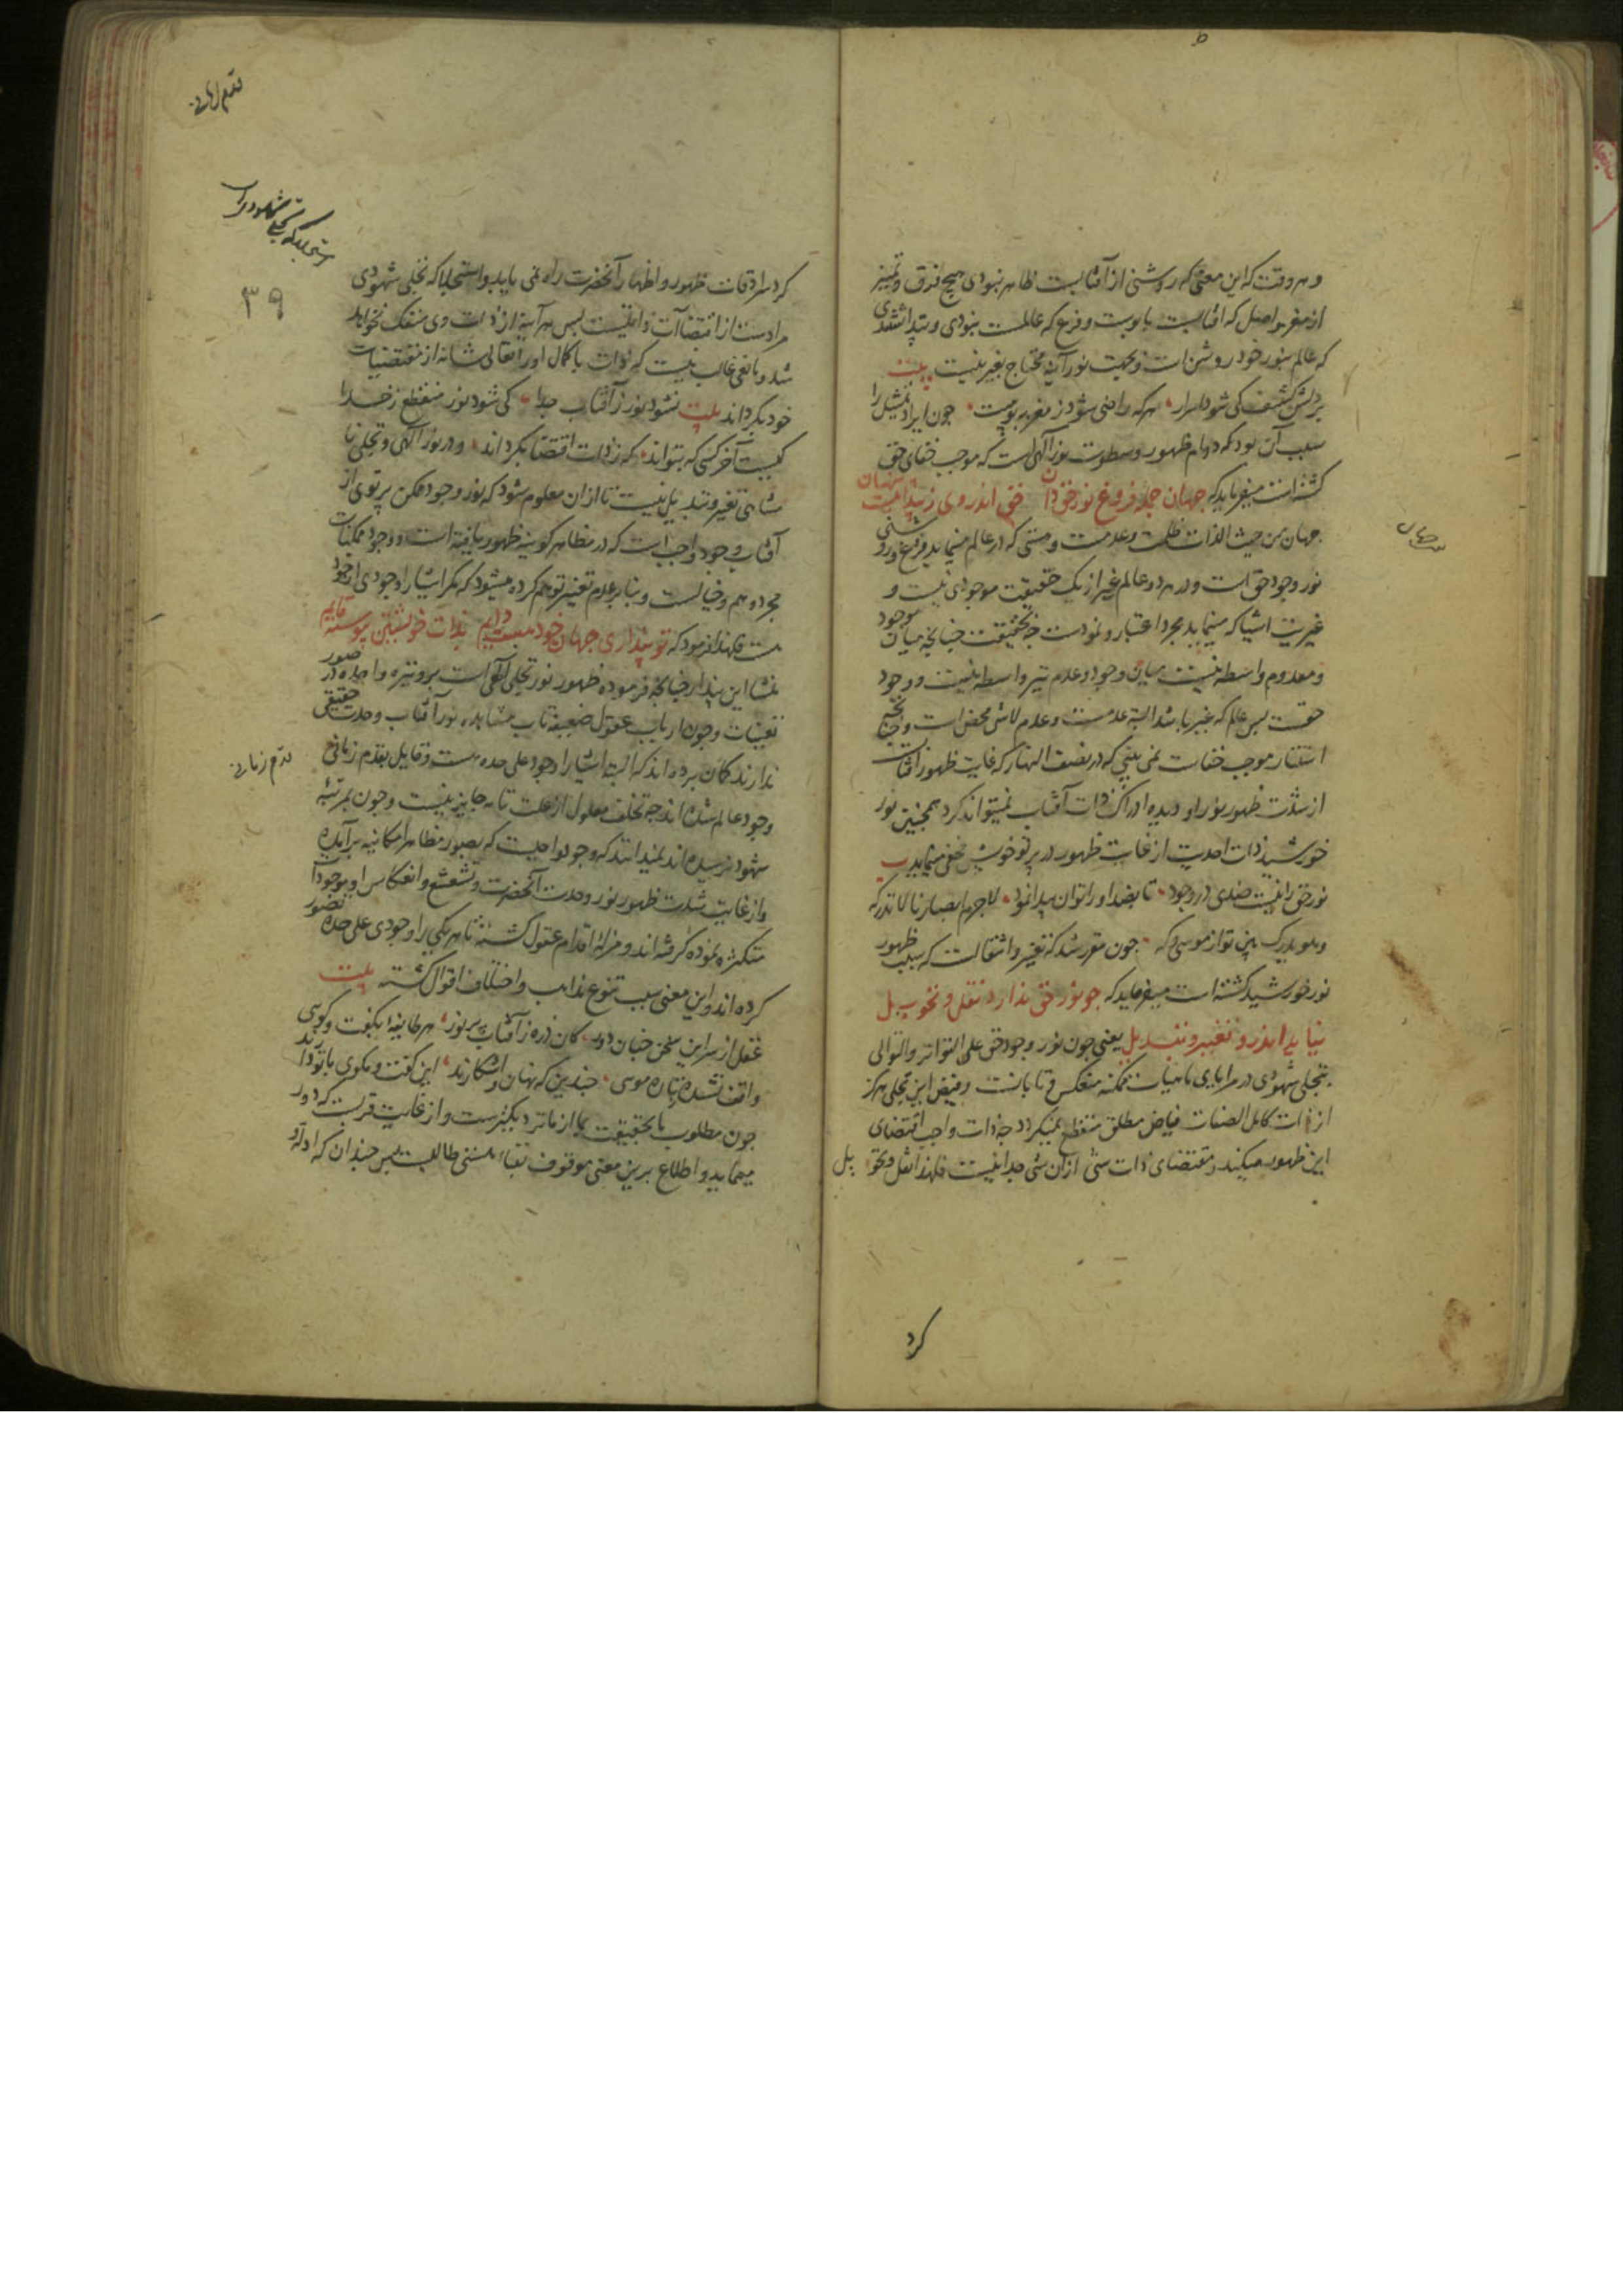 و هر وقت که این معنی که روشنی از آفتابست ظاهر نبودی هیچ فرق و تمییز
از مغز و اصل که آفتابست با پوست و فرع که عالمست نبودی و پیدا نشدی
که عالم بنور خود روشن است و بجهت نورانیت محتاج بغیر نیست بیت
بر دلش کشف کی شود اسرار هر که راضی شود ز مغز بپوست چون ایراد تمثیل را
سبب آن بود که دوام ظهور و سطوت نور الهی است که موجب خفای حق
گشته است میفرماید که جهان جمله فروغ نور حق دان حق اندر وی ز پیدائیست پنهان
جهان من حیث الذات ظلمت و عدمست و هستی که در عالم مینماید فروغ و روشنی
نور وجود حق است و در هر دو عالم غیر از یک حقیقت موجودی نیست و
غیریت اشیا که مینماید مجرد اعتبار و نمودست چه بحقیقت چنانچه میان موجود
و معدوم واسطه نیست میان وجود و عدم نیز واسطه نیست و وجود
حقست پس عالم که غیر باشد البته عدمست و عدم لاشی محض است و چنانچه
استتار موجب خفاست نمی بینی که در نصف النهار که غایت ظهور آفتابست
از شدت ظهور نور او دیده ادراک ذات آفتاب نمیتواند کرد همچنین نور
خورشید ذات احدیت از غایت ظهور در پرتو خویش مخفی مینماید بیت
نور حق را نیست ضدی در وجود تا بضد او را توان پیدا نمود لاجرم ابصارنا لا تدرکه
و هو یدرک بین تو از موسی و که چون مقرر شد که تغیر و انتقالست که سبب ظهور
نور خورشید گشته است میفرماید که چو نور حق ندارد نقل و تحویل
نیاید اندرو تغییر و تبدیل یعنی چون نور وجود حق علی التواتر و التوالی
بتجلی شهودی در مرایای ماهیات ممکنه منعکس و تابانست و فیض این تجلی هرگز
از ذات کامل الصفات فیاض مطلق منقطع نمیگردد چه ذات واجب اقتضای
این ظهور میکند و مقتضای ذات شی از آن شی جدا نیست فلهذا نقل و تحویل
کرد
۳۹
کرد سرادقات ظهور و اظهار آنحضرت راه نمی یابد و استجلا که تجلی شهودی
مرادست از اقتضاآت ذاتیست پس هر آینه از ذات وی منفک نخواهد
شد و مانعی غالب نیست که ذات با کمال او را تعالی شانه از مقتضیات
خود بگرداند بیت نشود نور ز آفتاب جدا کی شود نور منقطع ز خدا
کیست آخر کسی که بتواند که ز ذات اقتضا بگرداند و در نور الهی و تجلی نا
متناهی تغیر و تبدیل نیست تا از آن معلوم شود که نور وجود ممکن پرتوی از
آفتاب وجود واجب است که در مظاهر کونیه ظهور یافته است و وجود ممکنات
مجرد وهم و خیالست و بنابر عدم تغییر توهم کرده میشود که مگر اشیا را وجودی از خود
هست فلهذا فرمود که تو پنداری جهان خود هست دایم بذات خویشتن پیوسته قایم
منشا این پندار چنانچه فرموده ظهور نور تجلی الهی است بر وتیره واحده در صور
تعینات و چون ارباب عقول ضعیفه تاب مشاهده نور آفتاب وحدت حقیقی
ندارند گمان برده اند که البته اشیا را وجود علی حده هست و قایل بقدم زمانی
وجود عالم شده اند چه تخلف معلول از علت تامه جایز نیست و چون بمرتبه
شهود نرسیده اند نمیدانند که وجود واحدست که بصور مظاهر امکانیه برآمده
و از غایت شدت ظهور نور وحدت آنحضرت و تشعشع و انعکاس او موجودات
متکثره نموده گرفته اند و مزله اقدام عقول گشته تا هر یکی را وجودی علی حده تصور
کرده اند و این معنی سبب تنوع مذاهب و اختلاف اقوال گشته بیت
عقل از سر این سخن چنان دور کان ذره ز آفتاب پر نور هر طایفه بگفت و گویی
واقف نشده بتاره موسی چندین که نهان و آشکارند این گفت و مگوی با تو دارند
چون مطلوب بحقیقت بما از ما نزدیکترست و از غایت قربست که دور
مینماید و اطلاع برین معنی موقوف بفناء هستی طالبست پس چندان که ادله
قدم زمانی